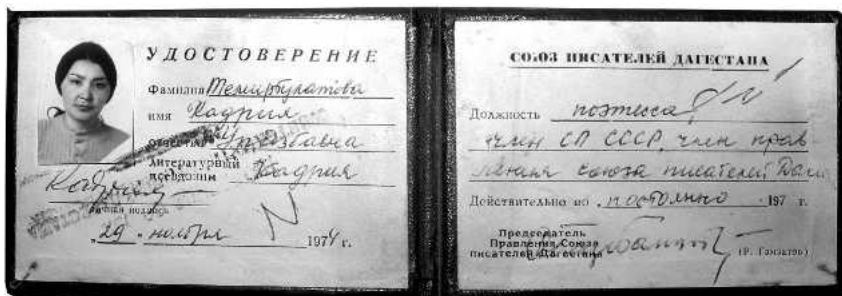 УДОСТОВЕРЕНИЕ
Фамилия Темирбулатова
имя Кадрия
отчество Уразбаевна
Литературный
псевдоним Кадрия
Кадрия
личная подпись
„29„ ноября 1974 г.
СОЮЗ ПИСАТЕЛЕЙ ДАГЕСТАНА
Должность поэтесса,
член СП СССР, член прав
ления союза писателей Даг
Действительно по „постоянно 197 г.
Председатель
Правления Союза
писателей Дагестана
(Р. Гамзатов)